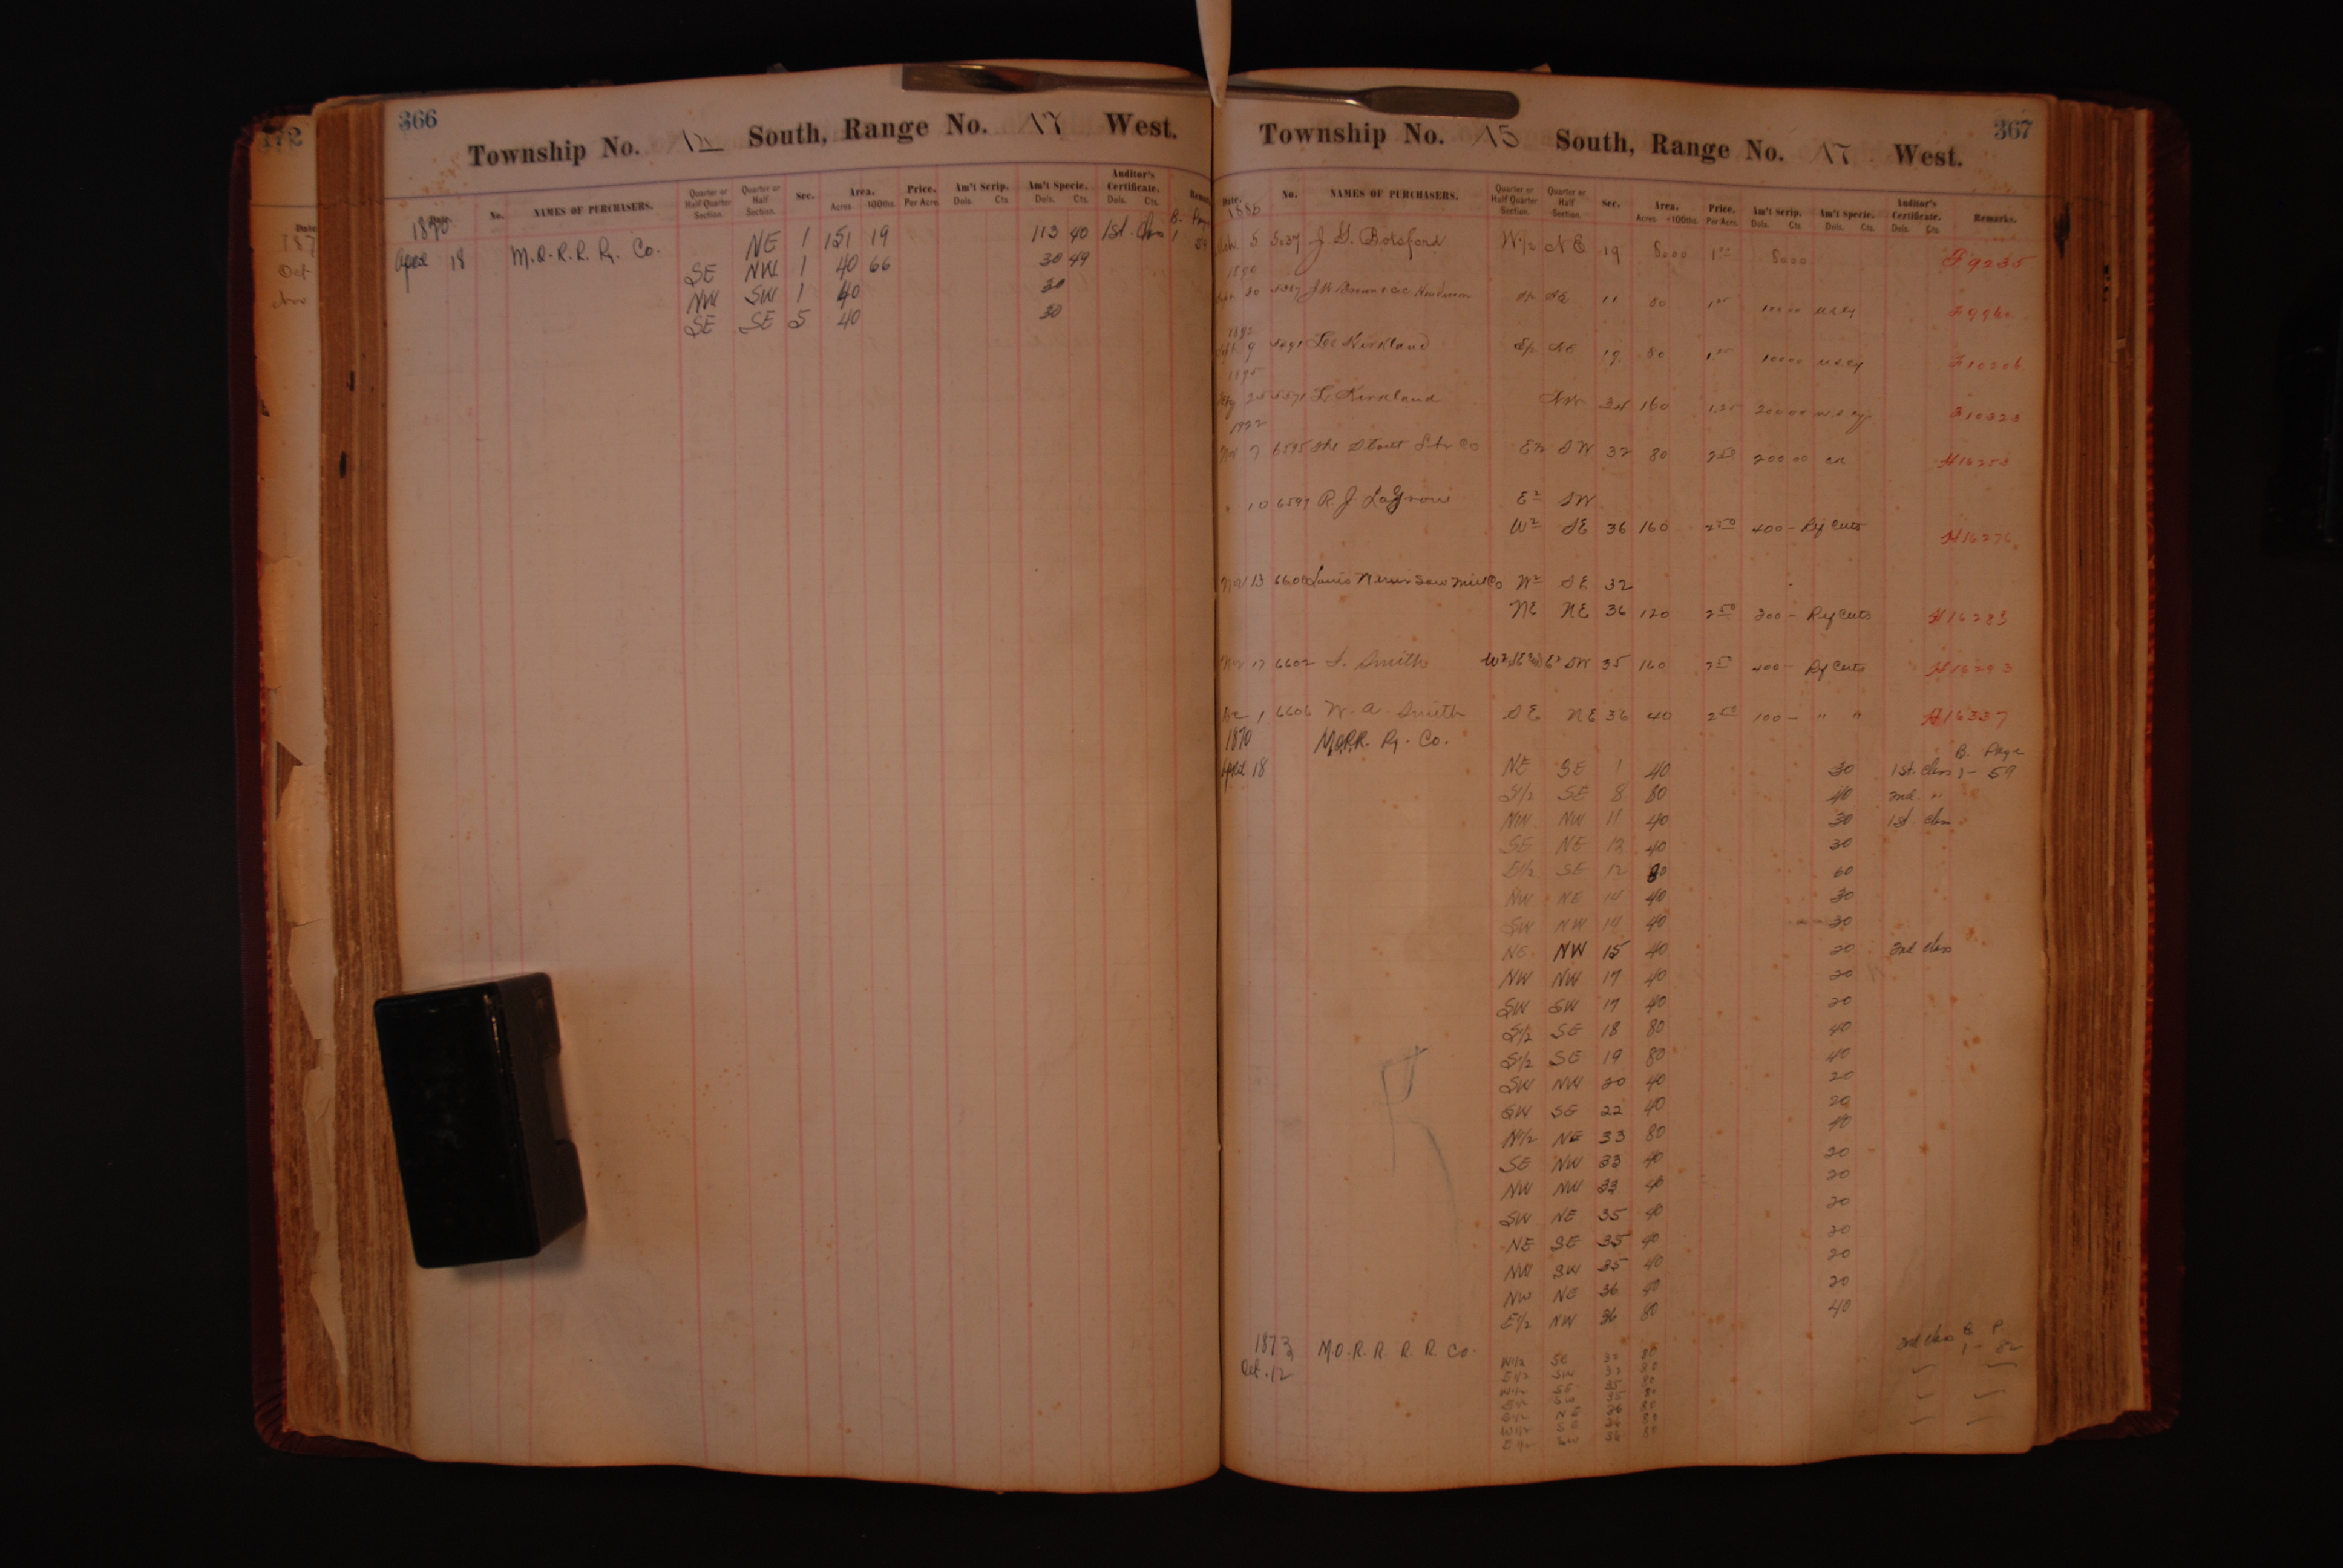 172
Date
187
Oct
366
Township No. 12 South, Range No. 17 West.
Date. No. NAMES OF PURCHASERS. Quarter or Half Quarter Section. Quarter or Half Section. Sec. Area. Acres 100ths. Price. Per Acre. Am't Scrip. Dols. Cts. Am't Specie. Dols. Cts. Auditor's Certificate. Dols. Cts.
1870 B. Page
April 18 M.O.R.R. Ry. Co. NE 1 151 19 113 40 1st. class 1
SE NW 1 40 66 30 49
NW SW 1 40 30
SE SE 5 40 30
367
Township No. 15 South, Range No. 17 West.
Date. No. NAMES OF PURCHASERS. Quarter or Half Quarter Section. Quarter or Half Section. Sec. Area. Acres 100ths. Price. Per Acre. Am't Scrip. Dols. Cts Am't Specie. Dols. Cts. Auditor's Certificate. Dols. Cts. Remarks.
1886
5 5037 J. G. Botsford W 1/2 NE 19 8000 1 00 8000 F 9235
1890
Sept 30 11 80 1000 F
1892
Sept 9 Lee Kirkland NE 19 80 10000 F 10206
1895
25 5571 L. Kirkland NW 34 160 1.25 20000 10323
1922
Nov 7 6595 The Stout Lbr Co E 2 SW 32 80 2 50 200 00 H 16253
10 6597 R. J. LaGrone E 2 SW
W 2 SE 36 160 2 50 400 - Ry Certs H 16276
Nov 13 6600 Louis Werner Saw Mill Co W 2 SE 32
NE NE 36 120 2 50 300 - Ry Certs H 16283
Nov 17 6602 Smith SW 35 160 2 50 400 - Ry Certs H 16293
Dec 1 6606 W. A. Smith SE NE 36 40 2 50 100 - " " H 16337
1870 M.O.R.R. Ry. Co. B. Page
April 18 NE SE 1 40 30 1st. class 1 - 59
S 1/2 SE 8 80 40 2nd. "
NW NW 11 40 30 1st. class
SE NE 12 40 30
E 1/2 SE 12 80 60
NW NE 14 40 30
SW NW 14 40 30
NE NW 15 40 20 2nd class
NW NW 17 40 20
SW SW 17 40 20
S 1/2 SE 18 80 40
S 1/2 SE 19 80 40
SW NW 20 40 20
SW SE 22 40 20
N 1/2 NE 33 80 40
SE NW 33 40 20
NW NW 33 40 20
SW NE 35 40 20
NE SE 35 40 20
NW SW 35 40 20
NW NE 36 40 20
E 1/2 NW 36 80 40
1873 M.O.R.R. R.R. Co. 2nd class B. P.
Oct. 12 W 1/2 SE 80 1 - 82
E 1/2 SW 80